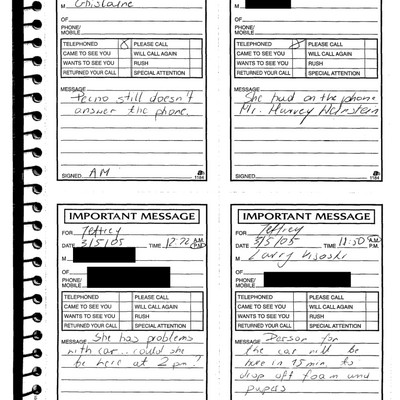 M Ghislaine
OF
PHONE/
MOBILE
TELEPHONED X PLEASE CALL
CAME TO SEE YOU WILL CALL AGAIN
WANTS TO SEE YOU RUSH
RETURNED YOUR CALL SPECIAL ATTENTION
MESSAGE
still doesn't
answer the phone.
SIGNED AM 1184
M
OF
PHONE/
MOBILE
TELEPHONED PLEASE CALL
CAME TO SEE YOU WILL CALL AGAIN
WANTS TO SEE YOU RUSH
RETURNED YOUR CALL SPECIAL ATTENTION
MESSAGE
She had on the phone
Mr. Harvey
SIGNED 1184
IMPORTANT MESSAGE
FOR Jeffrey
DATE 3/5/05 TIME A.M. P.M.
M
OF
PHONE/
MOBILE
TELEPHONED PLEASE CALL
CAME TO SEE YOU WILL CALL AGAIN
WANTS TO SEE YOU RUSH
RETURNED YOUR CALL SPECIAL ATTENTION
MESSAGE She has problems
with car.. could she
be here at 2 pm!
IMPORTANT MESSAGE
FOR Jeffrey
DATE 3/5/05 TIME 11:50 A.M. P.M.
M Larry
OF
PHONE/
MOBILE
TELEPHONED PLEASE CALL
CAME TO SEE YOU WILL CALL AGAIN
WANTS TO SEE YOU RUSH
RETURNED YOUR CALL SPECIAL ATTENTION
MESSAGE Person for
the car will be
here in 15 min to
drop off foam and